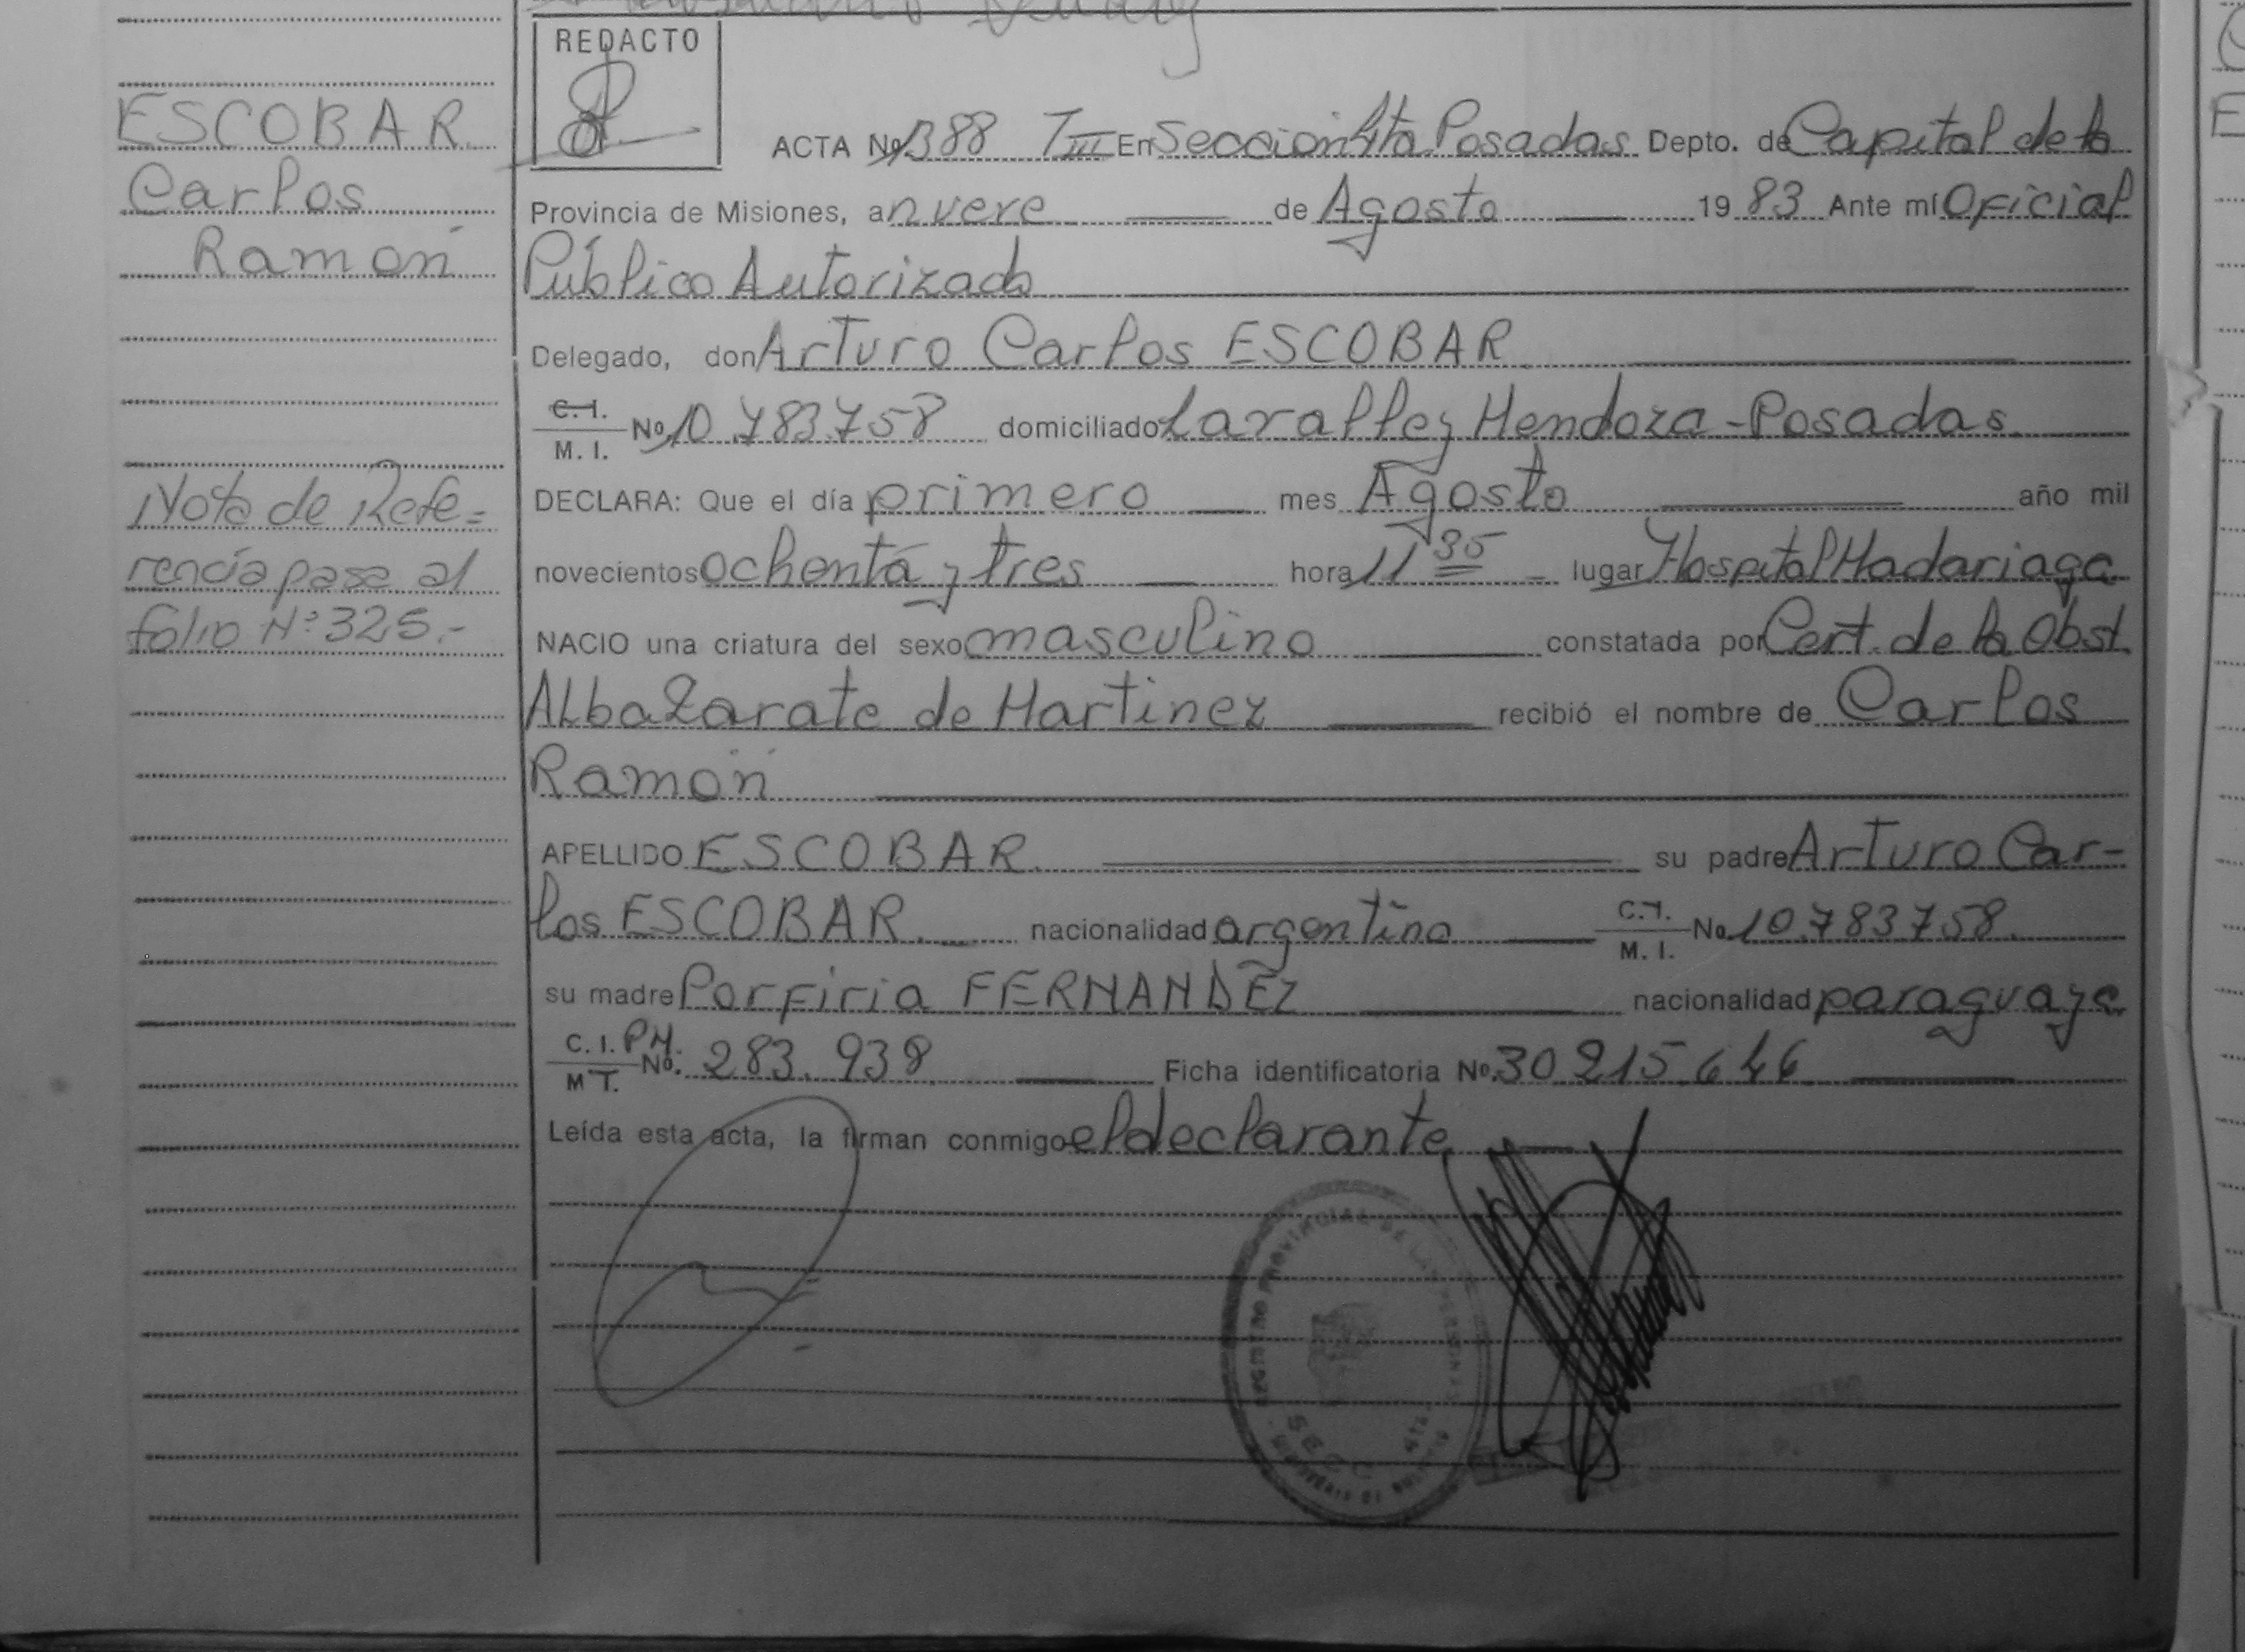 REDACTO
ESCOBAR
Carlos
Ramón
Nota de Refe=
rencia pasa al
folio Nº 325.-
ACTA Nº 1388 TIII En Sección 4ta Posadas Depto. de Capital de la
Provincia de Misiones, a nueve de Agosto 19 83 Ante mí Oficial
Público Autorizado
Delegado, don Arturo Carlos ESCOBAR
C.I. M.I. Nº 10.783.758 domiciliado Lavalle y Mendoza - Posadas.
DECLARA: Que el día primero mes Agosto año mil
novecientos ochenta y tres hora 11 35 lugar Hospital Madariaga
NACIO una criatura del sexo masculino constatada por Cert. de la Obst.
Alba Zarate de Martinez recibió el nombre de Carlos
Ramón
APELLIDO ESCOBAR. su padre Arturo Car-
los ESCOBAR. nacionalidad argentino C.I. M.I. Nº 10.783.758.
su madre Porfiria FERNANDEZ nacionalidad paraguaya
C.I. M.I. Nº. 283.938 Ficha identificatoria Nº. 30.215.646
Leída esta acta, la firman conmigo el declarante
REGISTRO PROVINCIAL DE LAS PERSONAS
SECC. 4ta.